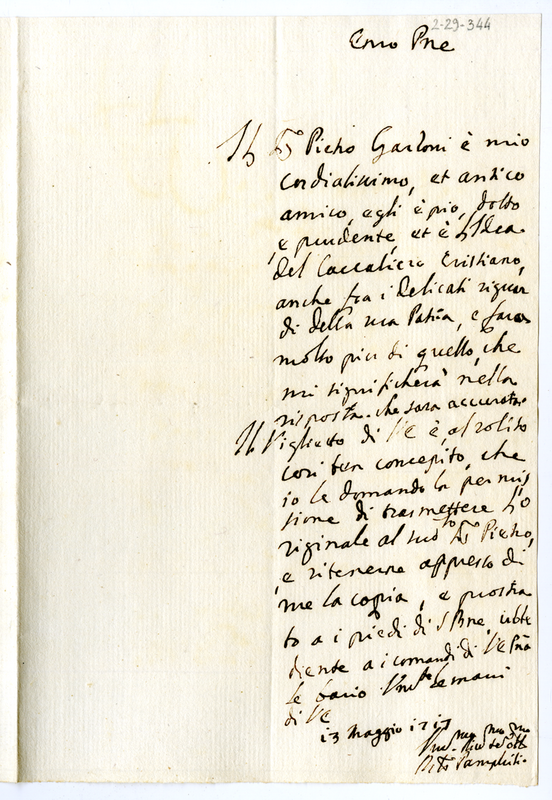 2-29-344
Emo Pne
Il Sr Pietro Garzoni è mio
cordialissimo, et antico
amico, egli è pio, dotto
e prudente, et è l'Idea
del Cavaliero Cristiano,
anche fra i delicati riguar
di della sua Patria, e farà
molto più di quello, che
mi significherà nella
risposta. che sarà accurata.
Il Viglietto di VE è, al solito
così ben concepito, che
io le domando la permis
sione di trasmettere l'o
riginale al sudto Sr Pietro,
e ritenerne appresso di
me la copia, e prostra
to a i piedi di S Bne, ubbe
diente a i comandi di VE
le bacio le mani
di VE
13 Maggio 1717